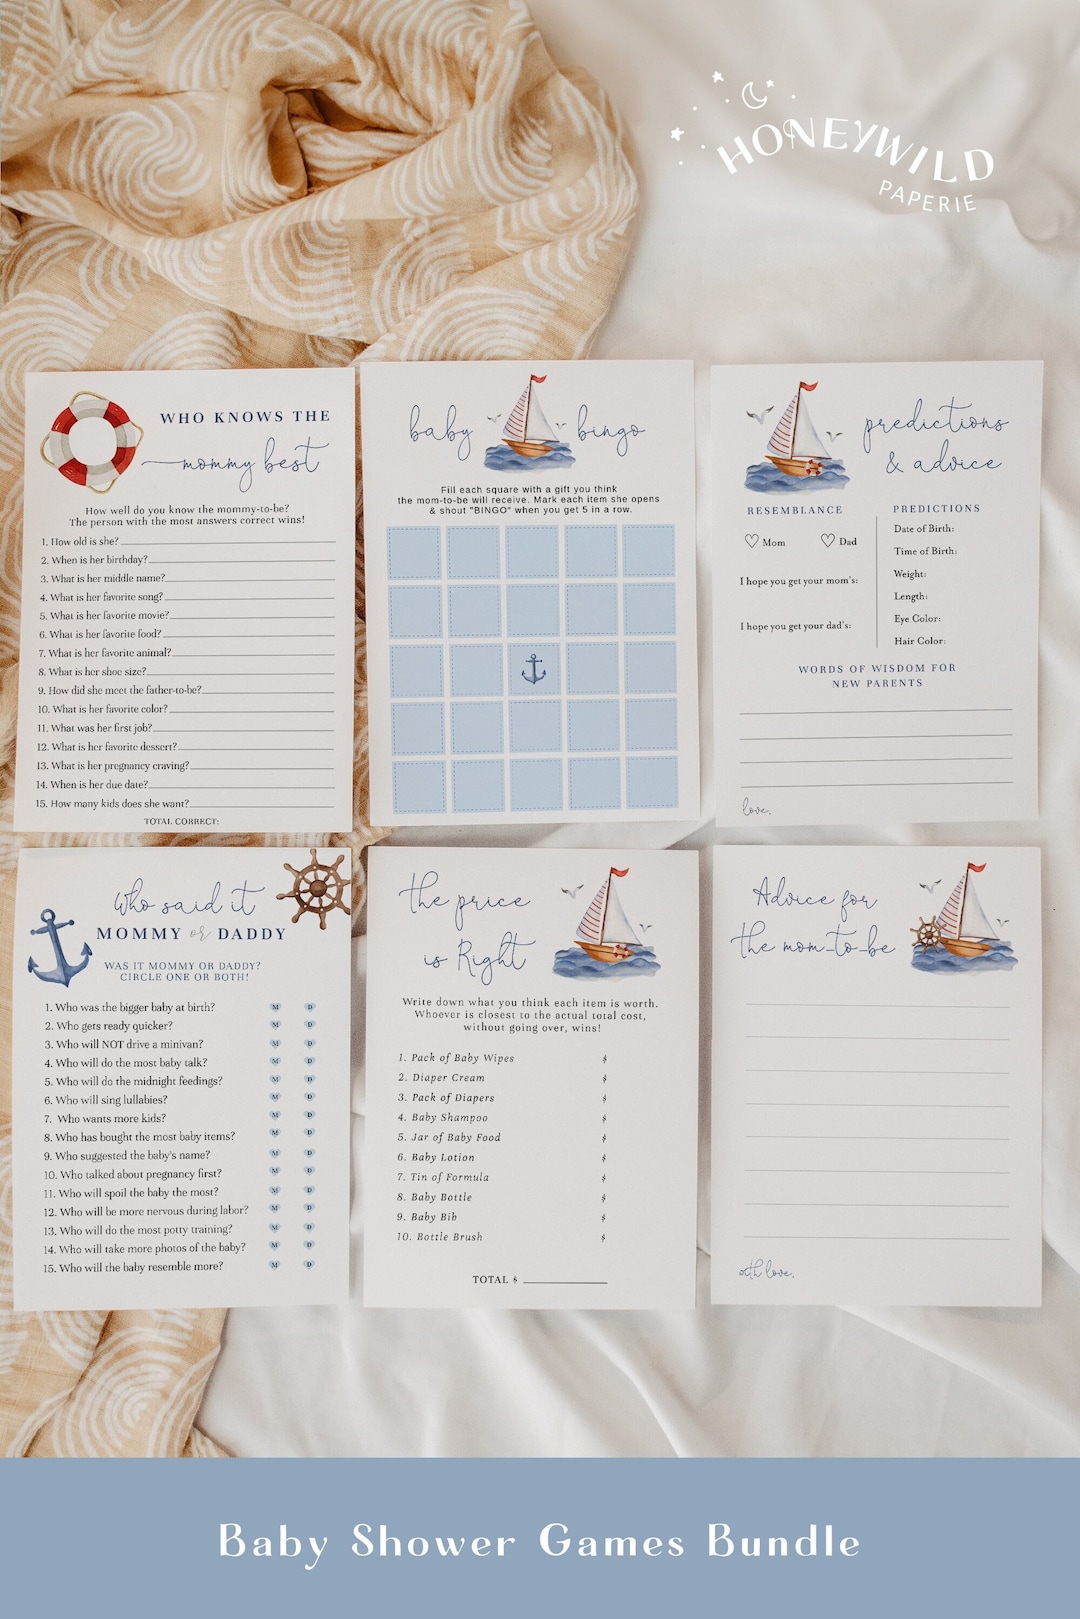 HONEYWILD
PAPERIE
WHO KNOWS THE
mommy best
How well do you know the mommy-to-be?
The person with the most answers correct wins!
1. How old is she?
2. When is her birthday?
3. What is her middle name?
4. What is her favorite song?
5. What is her favorite movie?
6. What is her favorite food?
7. What is her favorite animal?
8. What is her shoe size?
9. How did she meet the father-to-be?
10. What is her favorite color?
11. What was her first job?
12. What is her favorite dessert?
13. What is her pregnancy craving?
14. When is her due date?
15. How many kids does she want?
TOTAL CORRECT:
baby bingo
Fill each square with a gift you think
the mom-to-be will receive. Mark each item she opens
& shout "BINGO" when you get 5 in a row.
predictions
& advice
RESEMBLANCE
Mom Dad
I hope you get your mom's:
I hope you get your dad's:
PREDICTIONS
Date of Birth:
Time of Birth:
Weight:
Length:
Eye Color:
Hair Color:
WORDS OF WISDOM FOR
NEW PARENTS
love,
Who said it
MOMMY or DADDY
WAS IT MOMMY OR DADDY?
CIRCLE ONE OR BOTH!
1. Who was the bigger baby at birth? M D
2. Who gets ready quicker? M D
3. Who will NOT drive a minivan? M D
4. Who will do the most baby talk? M D
5. Who will do the midnight feedings? M D
6. Who will sing lullabies? M D
7. Who wants more kids? M D
8. Who has bought the most baby items? M D
9. Who suggested the baby's name? M D
10. Who talked about pregnancy first? M D
11. Who will spoil the baby the most? M D
12. Who will be more nervous during labor? M D
13. Who will do the most potty training? M D
14. Who will take more photos of the baby? M D
15. Who will the baby resemble more? M D
the price
is Right
Write down what you think each item is worth.
Whoever is closest to the actual total cost,
without going over, wins!
1. Pack of Baby Wipes $
2. Diaper Cream $
3. Pack of Diapers $
4. Baby Shampoo $
5. Jar of Baby Food $
6. Baby Lotion $
7. Tin of Formula $
8. Baby Bottle $
9. Baby Bib $
10. Bottle Brush $
TOTAL $
Advice for
the mom-to-be
with love,
Baby Shower Games Bundle